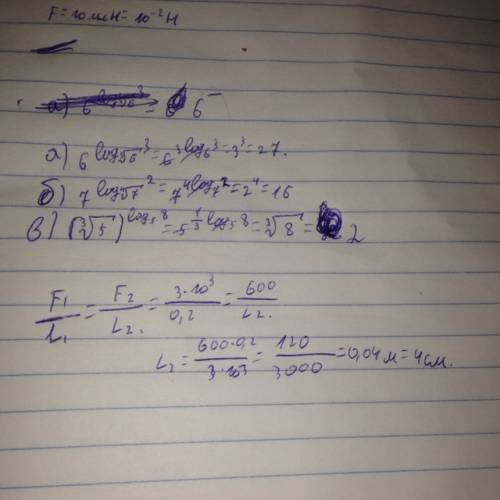 F = 10 мН = 10⁻² Н
а) 6^log√6 3 = 6 6⁻
а) 6^log∛6 3 = 6^3log₆3 = 3³ = 27.
б) 7^log∜7 2 = 7^4log₇2 = 2⁴ = 16
в) (∛5)^log₅8 = 5^1/3 log₅8 = ∛8 = 2
F₁/L₁ = F₂/L₂. = 3·10³/0,2 = 600/L₂.
L₂ = 600·0,2/3·10³ = 120/3000 = 0,04 м = 4 см.